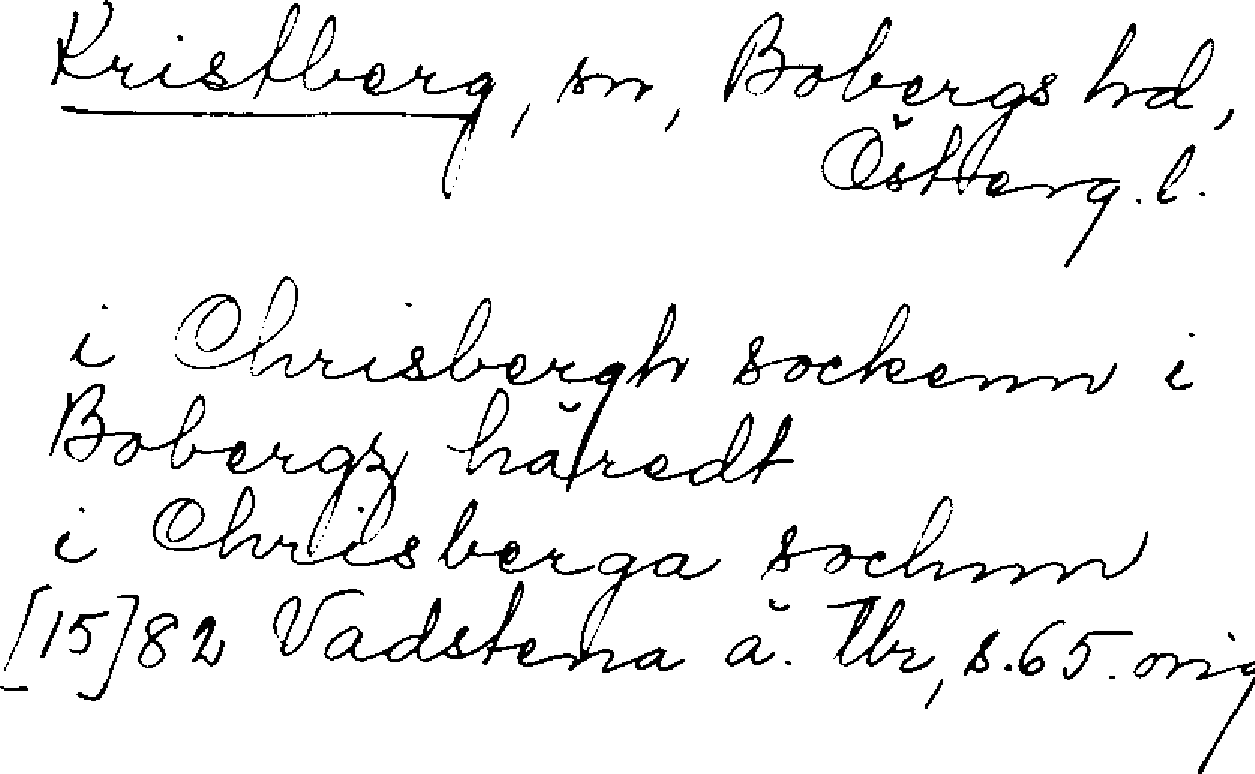 Kristberg, sn, Bobergs hd,
Österg. l.
i Chrisbergh sockenn i
Bobergz häredt
i Chrisberga sochnn
[15]82 Vadstena ä. Tbr, s. 65. orig